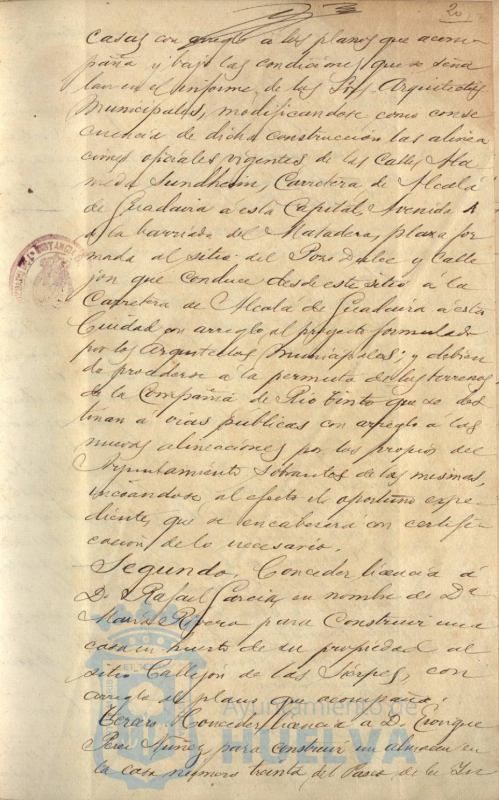 20
casas con arreglo á los planos que acom-
paña y bajo las condiciones que se seña
lan en el informe de los Sres Arquitectos
Municipales, modificandose como conse
cuencia de dicha construcción las alinea
ciones oficiales vigentes de las Calles Ala
meda Sundheim, Carretera de Alcalá
de Guadaira á esta Capital, Avenida A
a la barriada del Matadero, plaza for
mada al sitio del Pozo Dulce y Calle
jon que conduce desde este sitio a la
Carretera de Alcalá de Guadaira á esta
Ciudad con arreglo al proyecto formulado
por los Arquitectos Municipales; y debien
do procederse a la permuta de los terrenos
de la Compañia de Rio Tinto que se des
tinan a vias publicas con arreglo a las
nuevas alineaciones por los propios del
Ayuntamiento sobrantes de las mismas,
incoándose al efecto el oportuno expe-
diente, que se encabezará con certifi-
cación de lo necesario.
Segundo. Conceder licencia á
D. Rafael Garcia, en nombre de Dª
Maria Rivero para construir una
casa en huerto de su propiedad al
sitio Callejón de las Sierpes, con
arreglo al plano que acompaña.
Tercero. Conceder licencia a D. Enrique
Perez Nuñez para construir un almacen en
la casa numero treinta del Paseo de la In
Ayuntamiento de
HUELVA